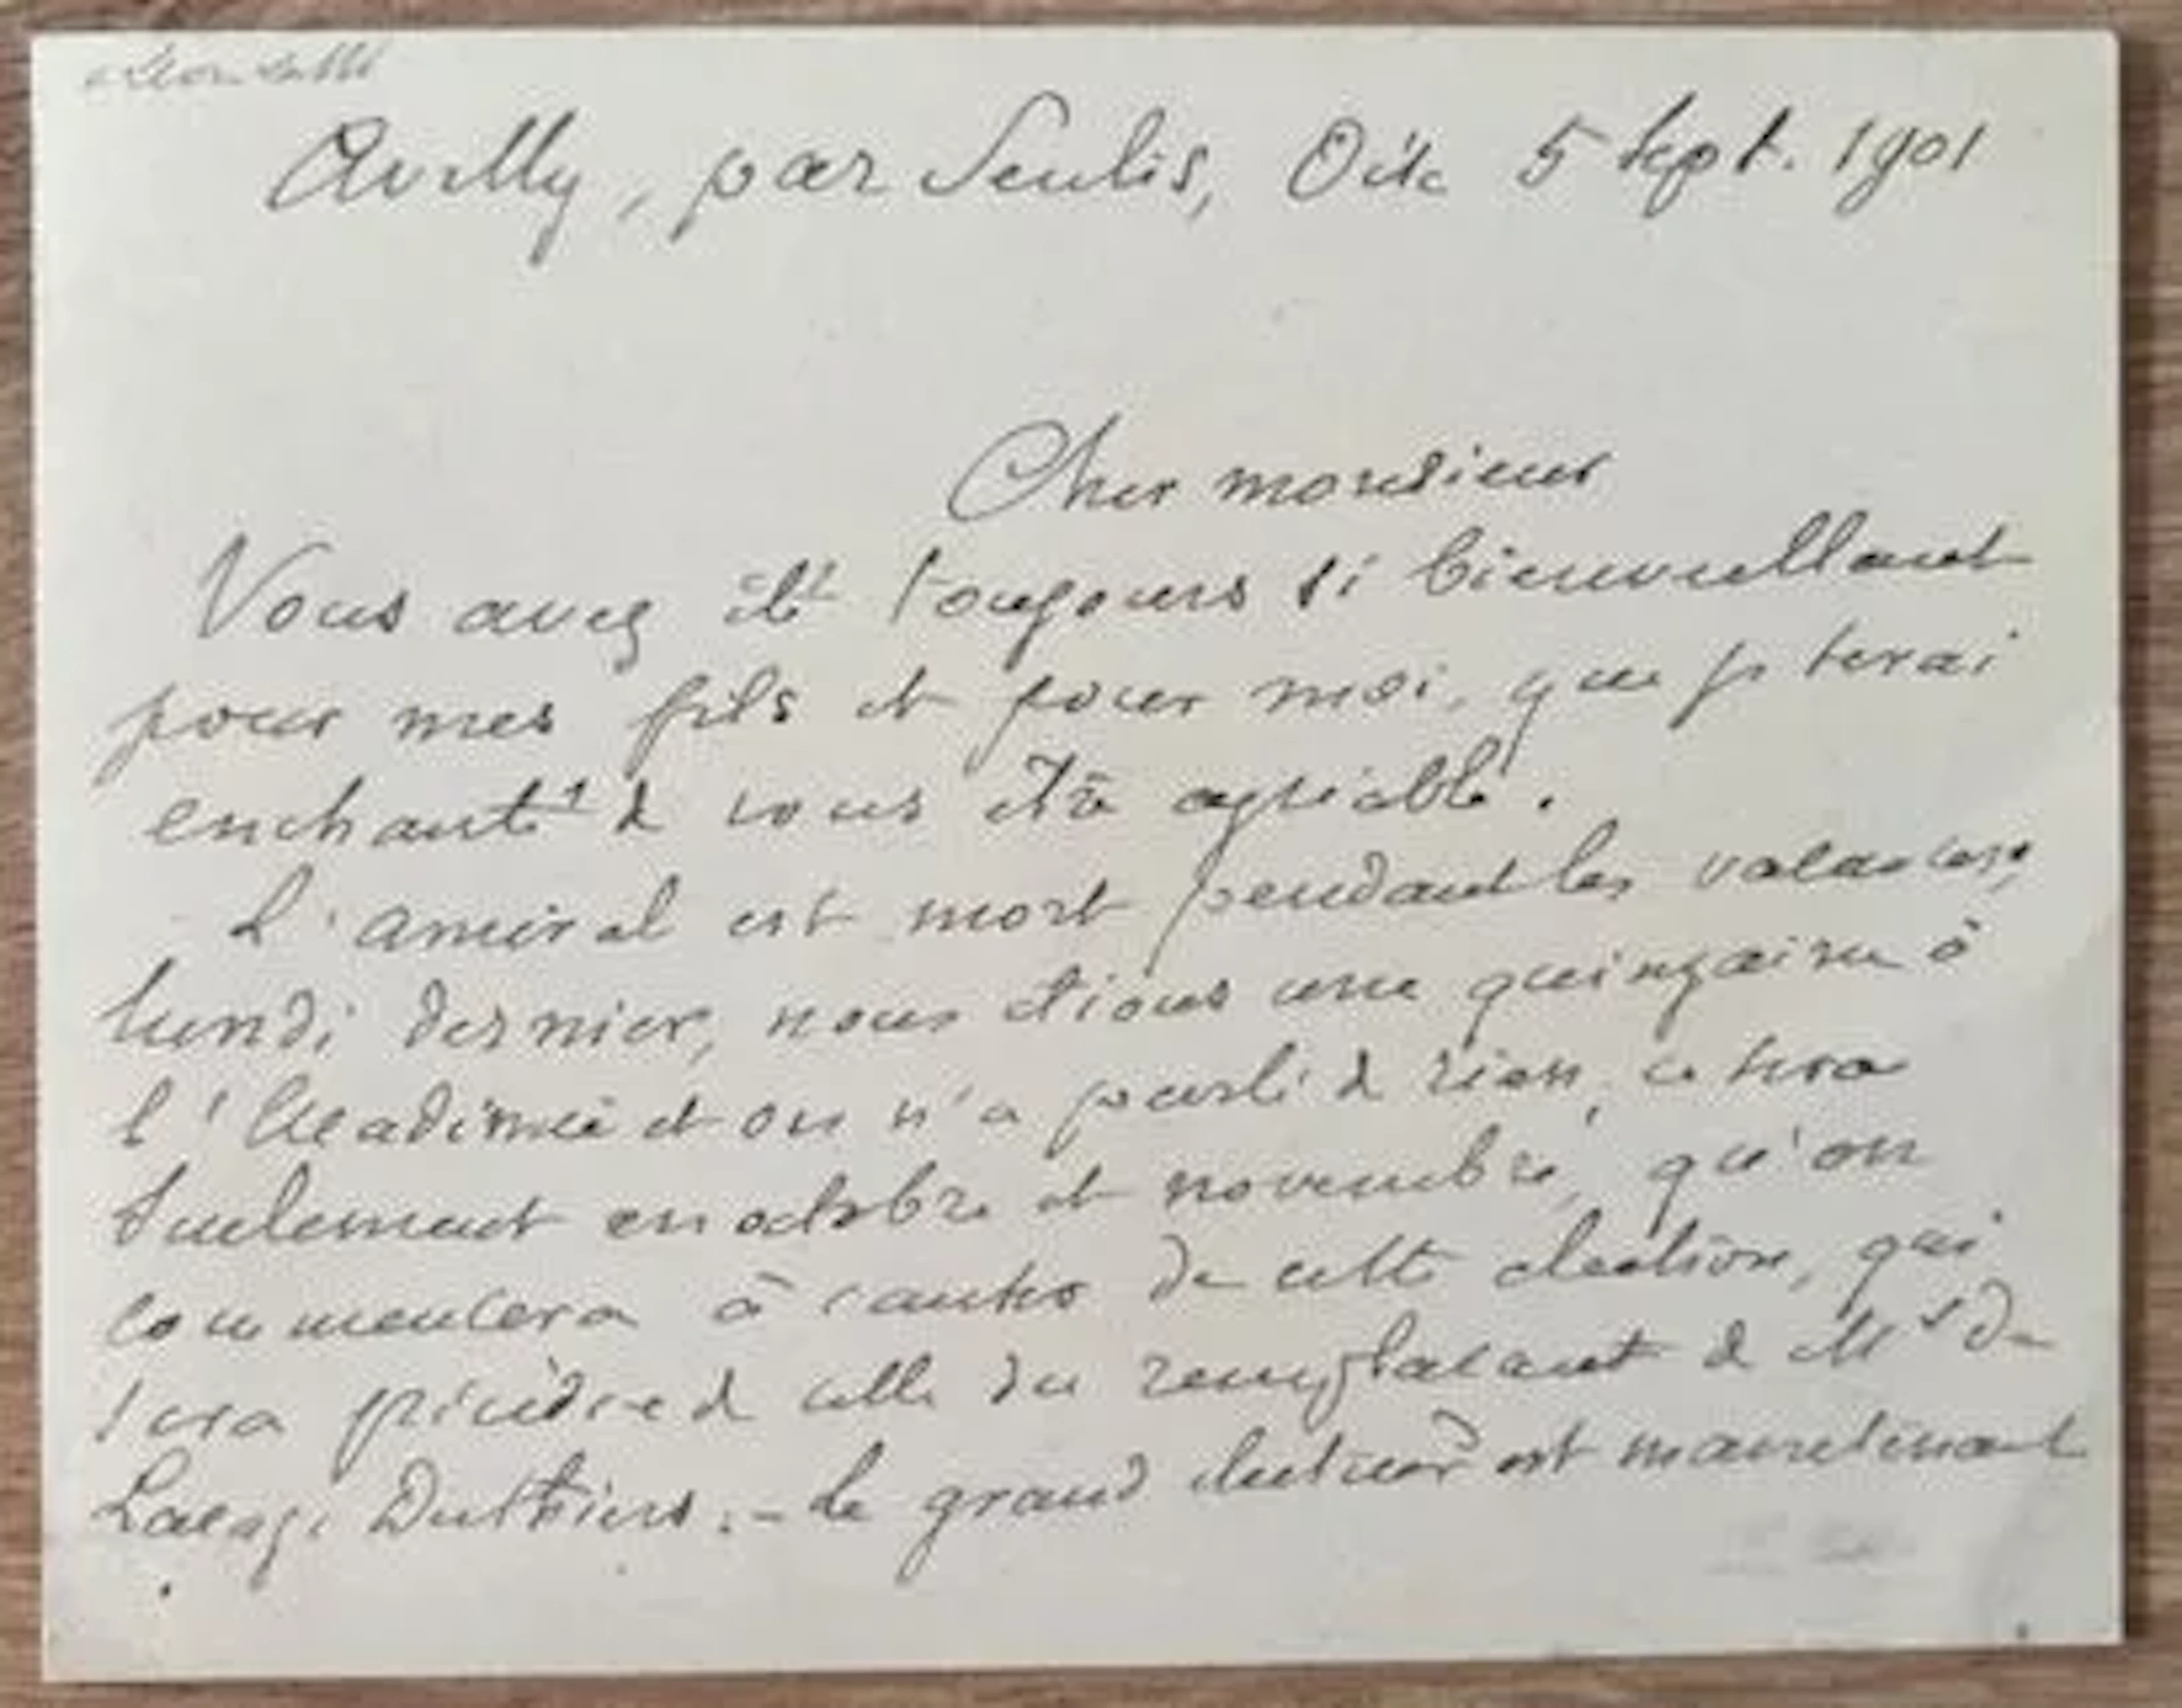 Avilly, par Senlis, Oise 5 Sept. 1901
Cher monsieur
Vous avez été toujours si bienveillant
pour mes fils et pour moi, que je serai
enchanté de vous être agréable.
L'amiral est mort pendant les vacances,
lundi dernier, nous étions une quinzaine à
l'Académie et on n'a parlé de rien, ce sera
seulement en octobre et novembre, qu'on
commencera à causer de cette élection, qui
sera précédée de celle du remplaçant de Mr de
Lacaze Duthiers. - Le grand électeur est maintenant